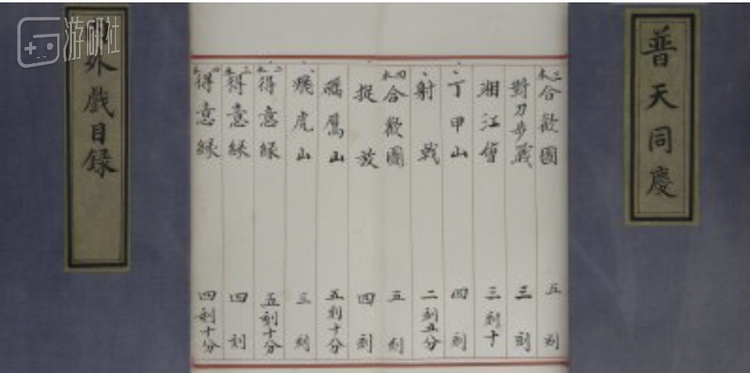 普天同慶
三本合歡圖 五刻
對刀步戰 三刻
湘江會 三刻十
丁甲山 四刻
射戟 二刻五分
四本合歡圖 五刻
捉放 四刻
鷹山 五刻十分
飛虎山 三刻
二本得意緣 五刻十分
三本得意緣 四刻
四本得意緣 四刻十分
外戲目録
游研社